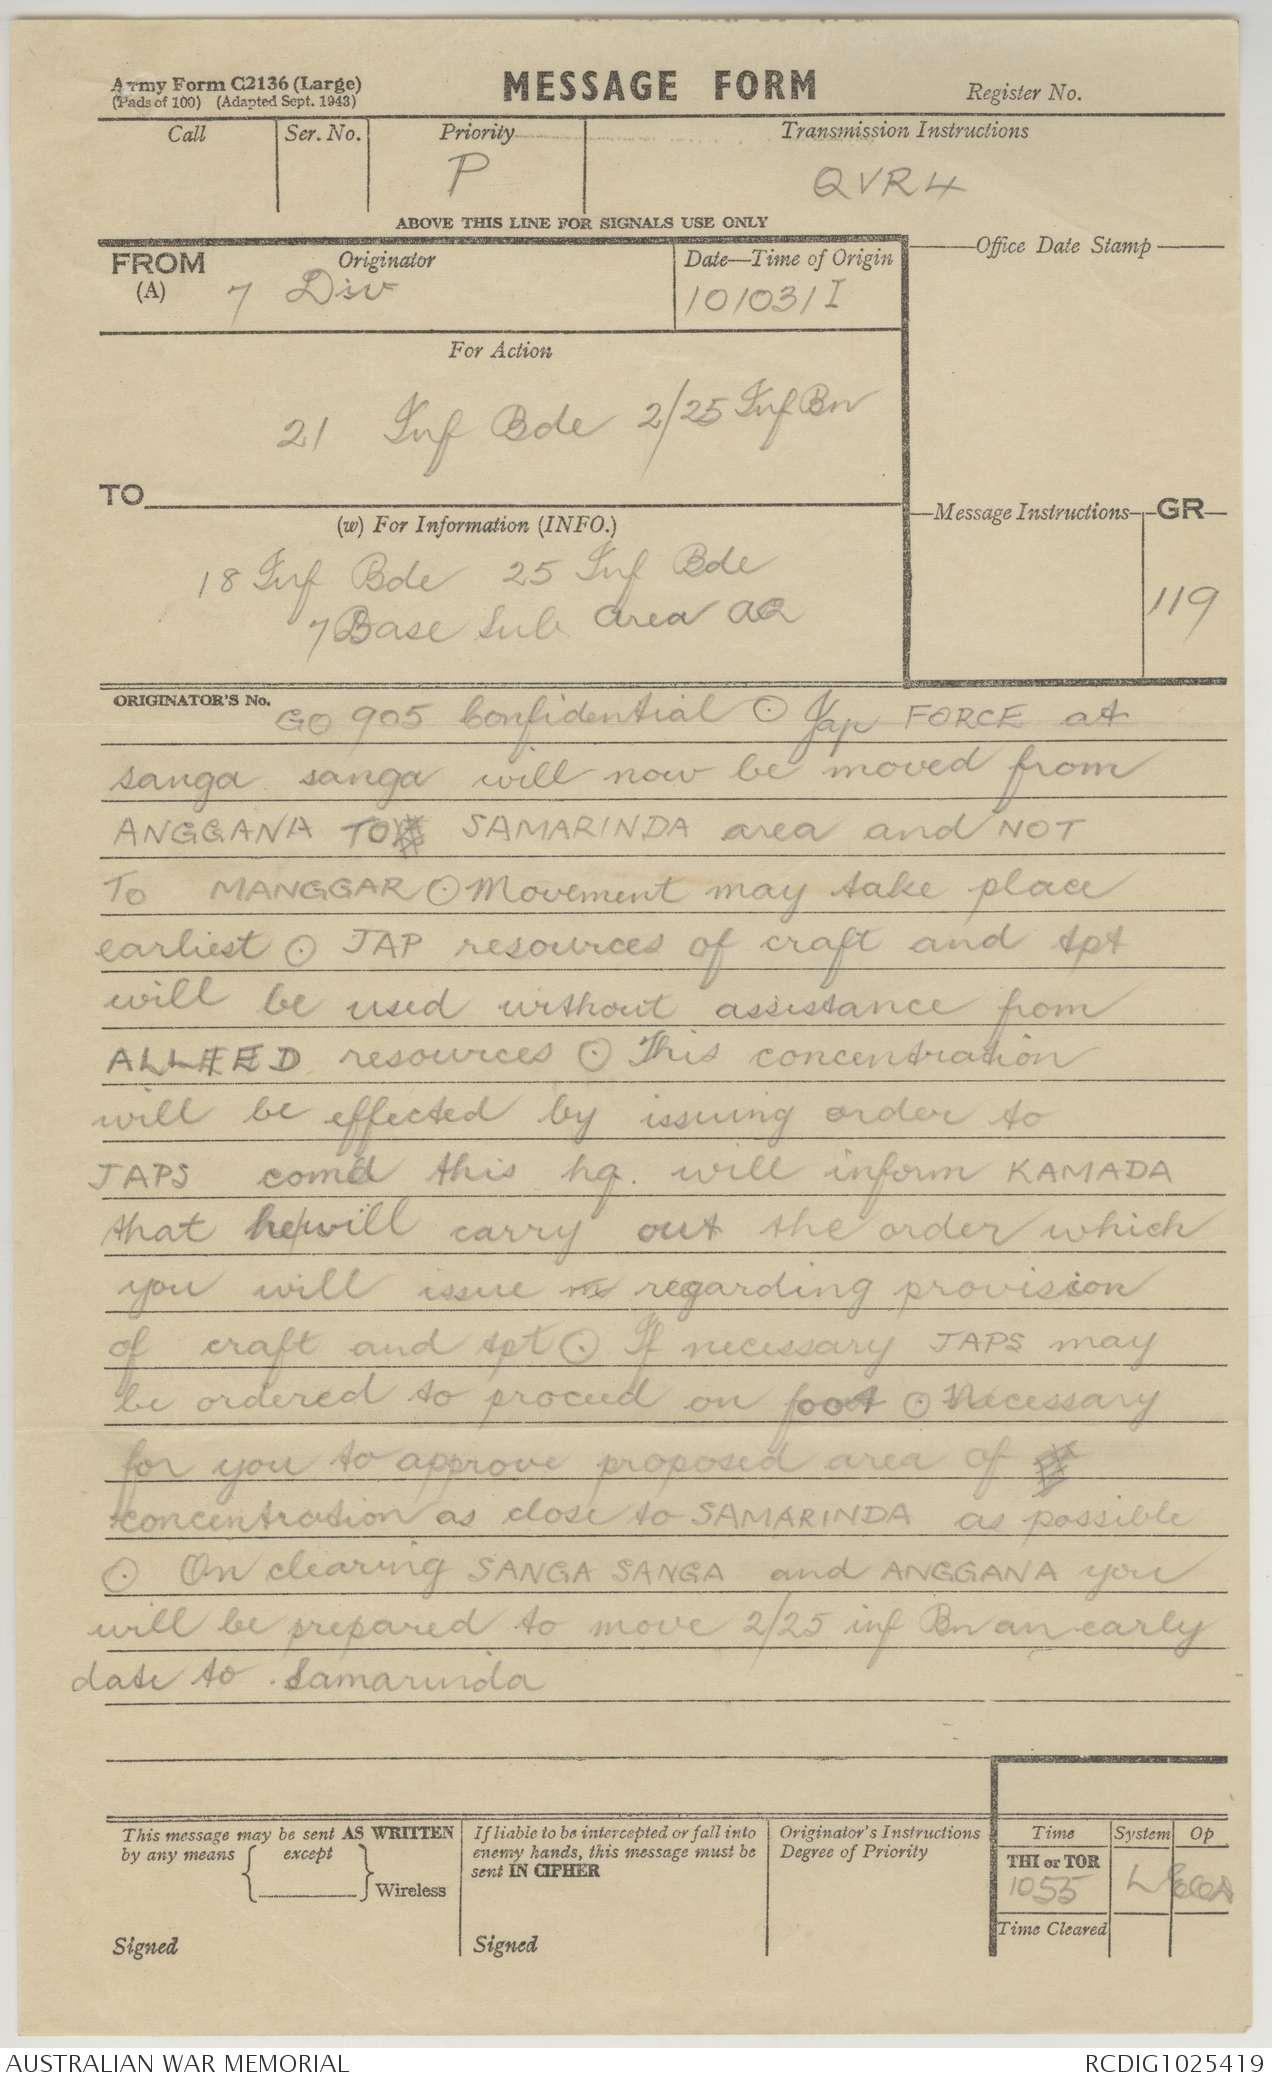 Army Form C2136 (Large)
(Pads of 100) (Adapted Sept. 1943)
MESSAGE FORM
Register No.
Call
Ser. No.
Priority
P
Transmission Instructions
QVR4
ABOVE THIS LINE FOR SIGNALS USE ONLY
FROM
(A)
Originator
7 Div
Date—Time of Origin
101031 I
Office Date Stamp
For Action
21 Inf Bde 2/25 Inf Bn
TO
(w) For Information (INFO.)
Message Instructions
GR
119
18 Inf Bde 25 Inf Bde
7 Base Sub area
ORIGINATOR'S No.
GO 905 Confidential ⊙ Jap FORCE at
sanga sanga will now be moved from
ANGGANA TO SAMARINDA area and NOT
To MANGGAR ⊙ Movement may take place
earliest ⊙ JAP resources of craft and tpt
will be used without assistance from
ALLIED resources ⊙ This concentration
will be effected by issuing order to
JAPS comd this hq. will inform KAMADA
that he/will carry out the order which
you will issue regarding provision
of craft and tpt ⊙ If necessary JAPS may
be ordered to proceed on foot ⊙ Necessary
for you to approve proposed area of
concentration as close to SAMARINDA as possible
⊙ On clearing SANGA SANGA and ANGGANA you
will be prepared to move 2/25 inf Bn an early
date to Samarinda
This message may be sent AS WRITTEN
by any means except
Wireless
Signed
If liable to be intercepted or fall into
enemy hands, this message must be
sent IN CIPHER
Signed
Originator's Instructions
Degree of Priority
Time
System
Op
THI or TOR
1055
L
Time Cleared
AUSTRALIAN WAR MEMORIAL
RCDIG1025419